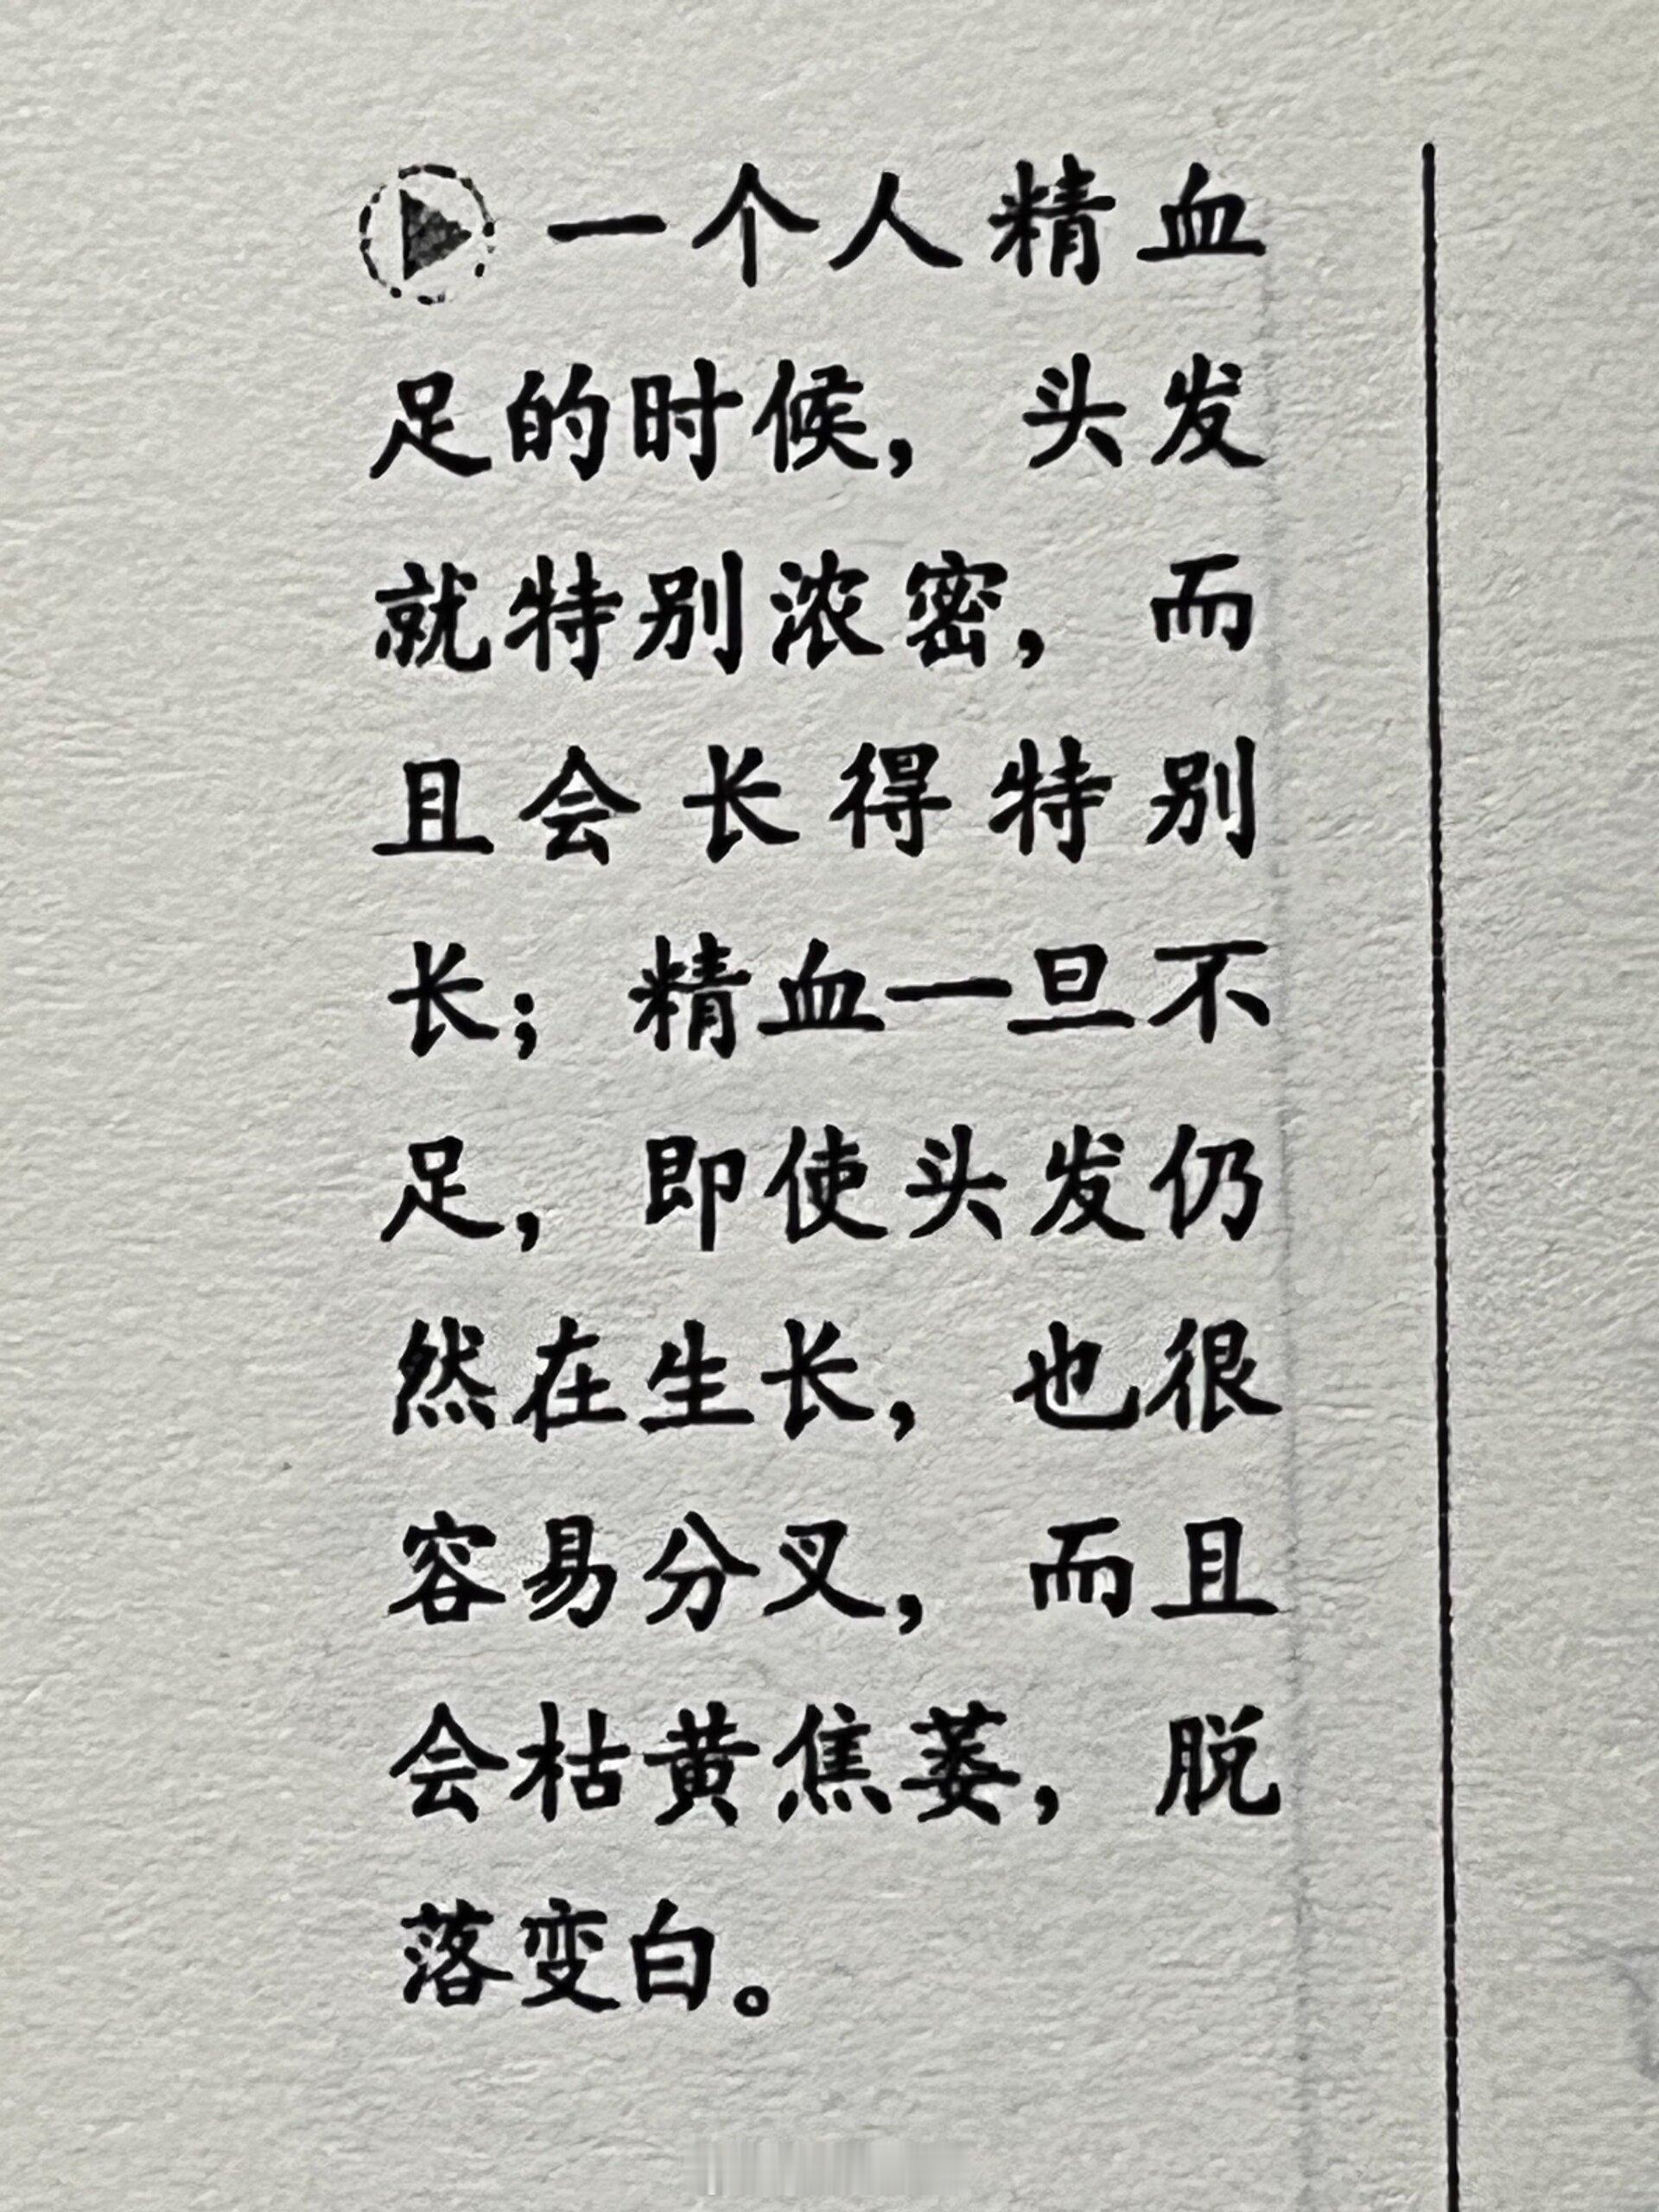 一个人精血
足的时候，头发
就特别浓密，而
且会长得特别
长；精血一旦不
足，即使头发仍
然在生长，也很
容易分叉，而且
会枯黄焦萎，脱
落变白。